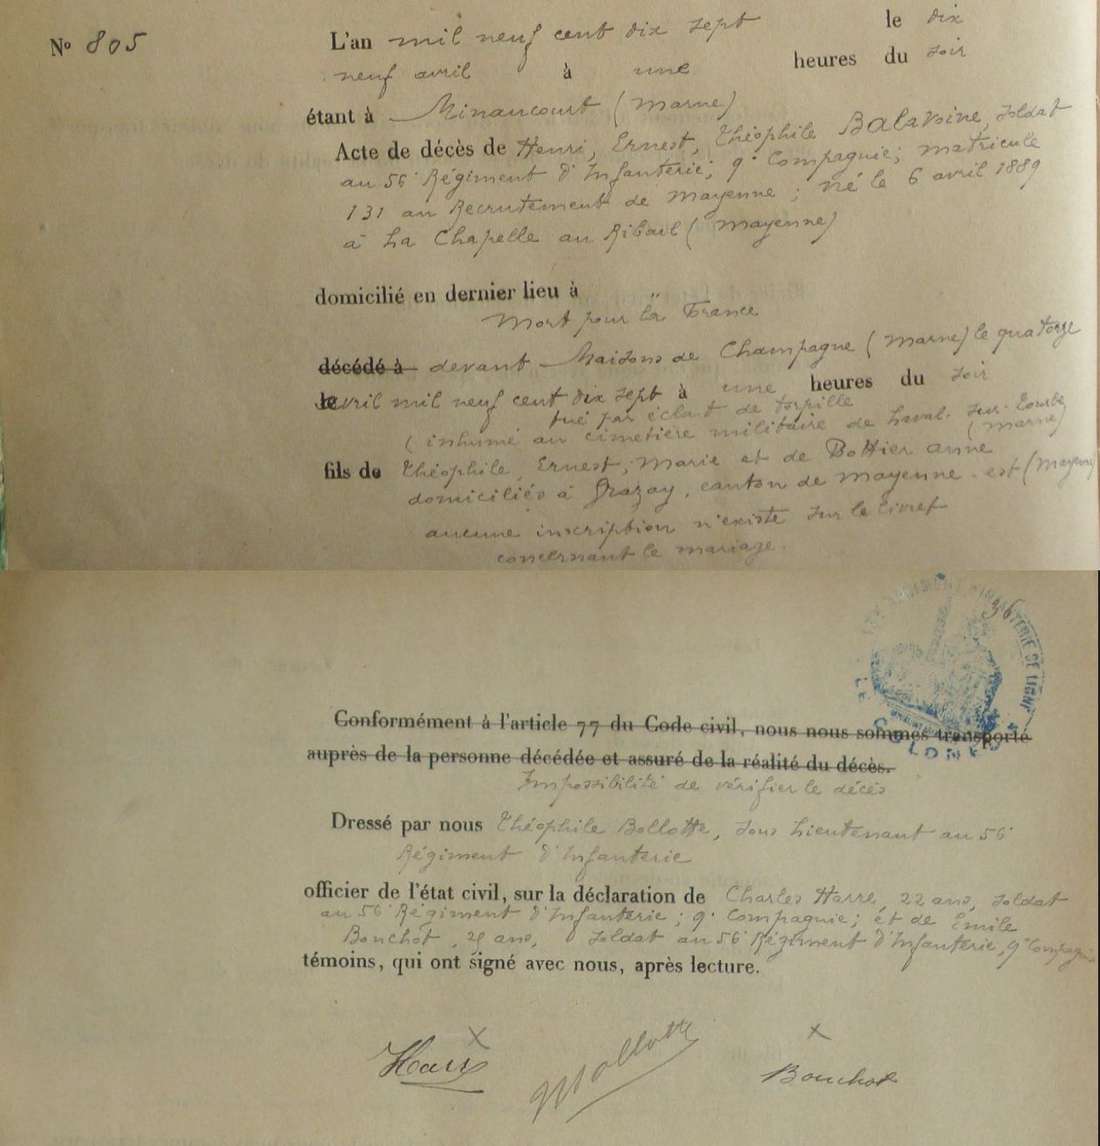 N° 805
L'an mil neuf cent dix sept le dix
neuf avril à une heures du soir
étant à Minaucourt (Marne)
Acte de décès de Henri, Ernest, Théophile Balavoine, soldat
au 56e Régiment d'Infanterie; 9e Compagnie; matricule
131 au Recrutement de Mayenne; né le 6 avril 1889
à La Chapelle au Ribail (Mayenne)
domicilié en dernier lieu à
Mort pour la France
décédé à devant Maisons de Champagne (Marne) le quatorze
le avril mil neuf cent dix sept à une heures du soir
tué par éclat de torpille
(inhumé au cimetière militaire de Laval-sur-Tourbe
(Marne)
fils de Théophile, Ernest, Marie et de Bottier anne
domiciliés à Grazay, canton de mayenne-est (Mayenne)
aucune inscription n'existe sur le livret
concernant le mariage.
36
INFANTERIE DE LIGNE
COLONEL
Conformément à l'article 77 du Code civil, nous nous sommes transporté
auprès de la personne décédée et assuré de la réalité du décès.
Impossibilité de vérifier le décès
Dressé par nous Théophile Bollotte, sous Lieutenant au 56e
Régiment d'Infanterie
officier de l'état civil, sur la déclaration de Charles Harre, 22 ans, soldat
au 56e Régiment d'Infanterie; 9e Compagnie; et de Emile
Bouchot, ans, soldat au 56e Régiment d'Infanterie, 9e Compagnie
témoins, qui ont signé avec nous, après lecture.
x x
Bollotte Bouchot